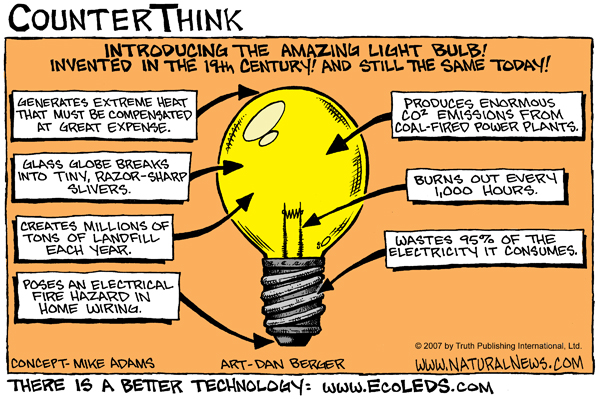 COUNTERTHINK
INTRODUCING THE AMAZING LIGHT BULB!
INVENTED IN THE 19th CENTURY! AND STILL THE SAME TODAY!
GENERATES EXTREME HEAT
THAT MUST BE COMPENSATED
AT GREAT EXPENSE.
GLASS GLOBE BREAKS
INTO TINY, RAZOR-SHARP
SLIVERS.
CREATES MILLIONS OF
TONS OF LANDFILL
EACH YEAR.
POSES AN ELECTRICAL
FIRE HAZARD IN
HOME WIRING.
PRODUCES ENORMOUS
CO² EMISSIONS FROM
COAL-FIRED POWER PLANTS.
BURNS OUT EVERY
1,000 HOURS.
WASTES 95% OF THE
ELECTRICITY IT CONSUMES.
© 2007 by Truth Publishing International, Ltd.
CONCEPT-MIKE ADAMS
ART-DAN BERGER
WWW.NATURALNEWS.COM
THERE IS A BETTER TECHNOLOGY: WWW.ECOLEDS.COM